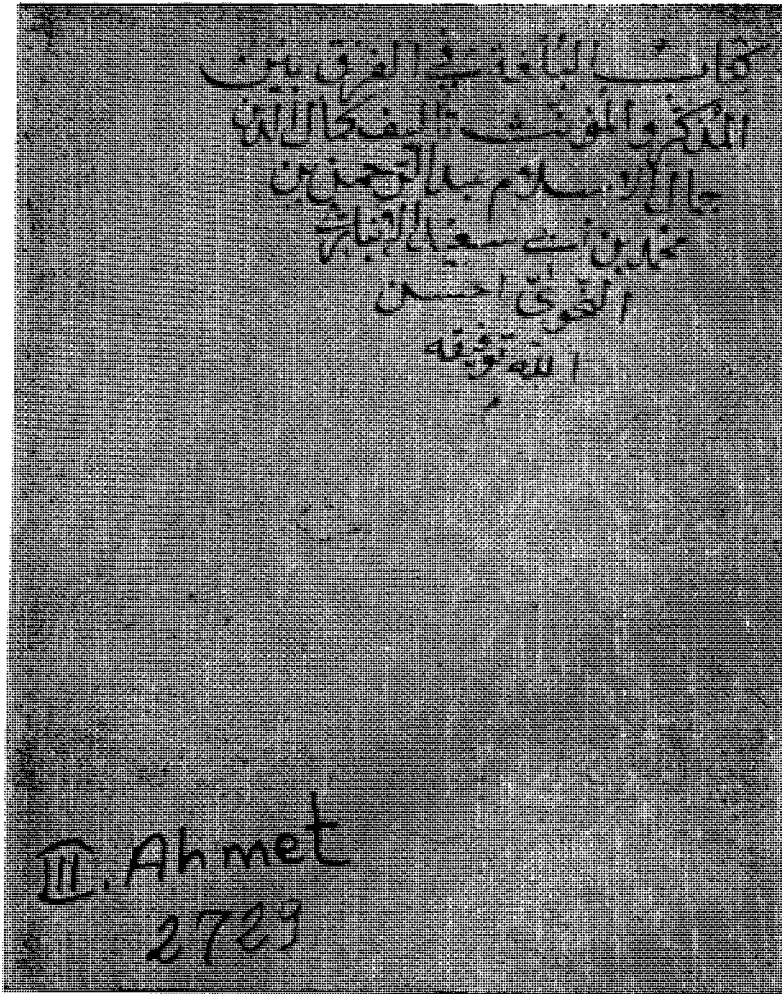 كتاب البلغة في الفرق بين
المذكر والمؤنث تاليف كمال الدين
جمال الاسلام عبد الرحمن بن
محمد بن أبي سعيد الانباري
النحوي احسن
الله توفيقه
III. Ahmet
2729